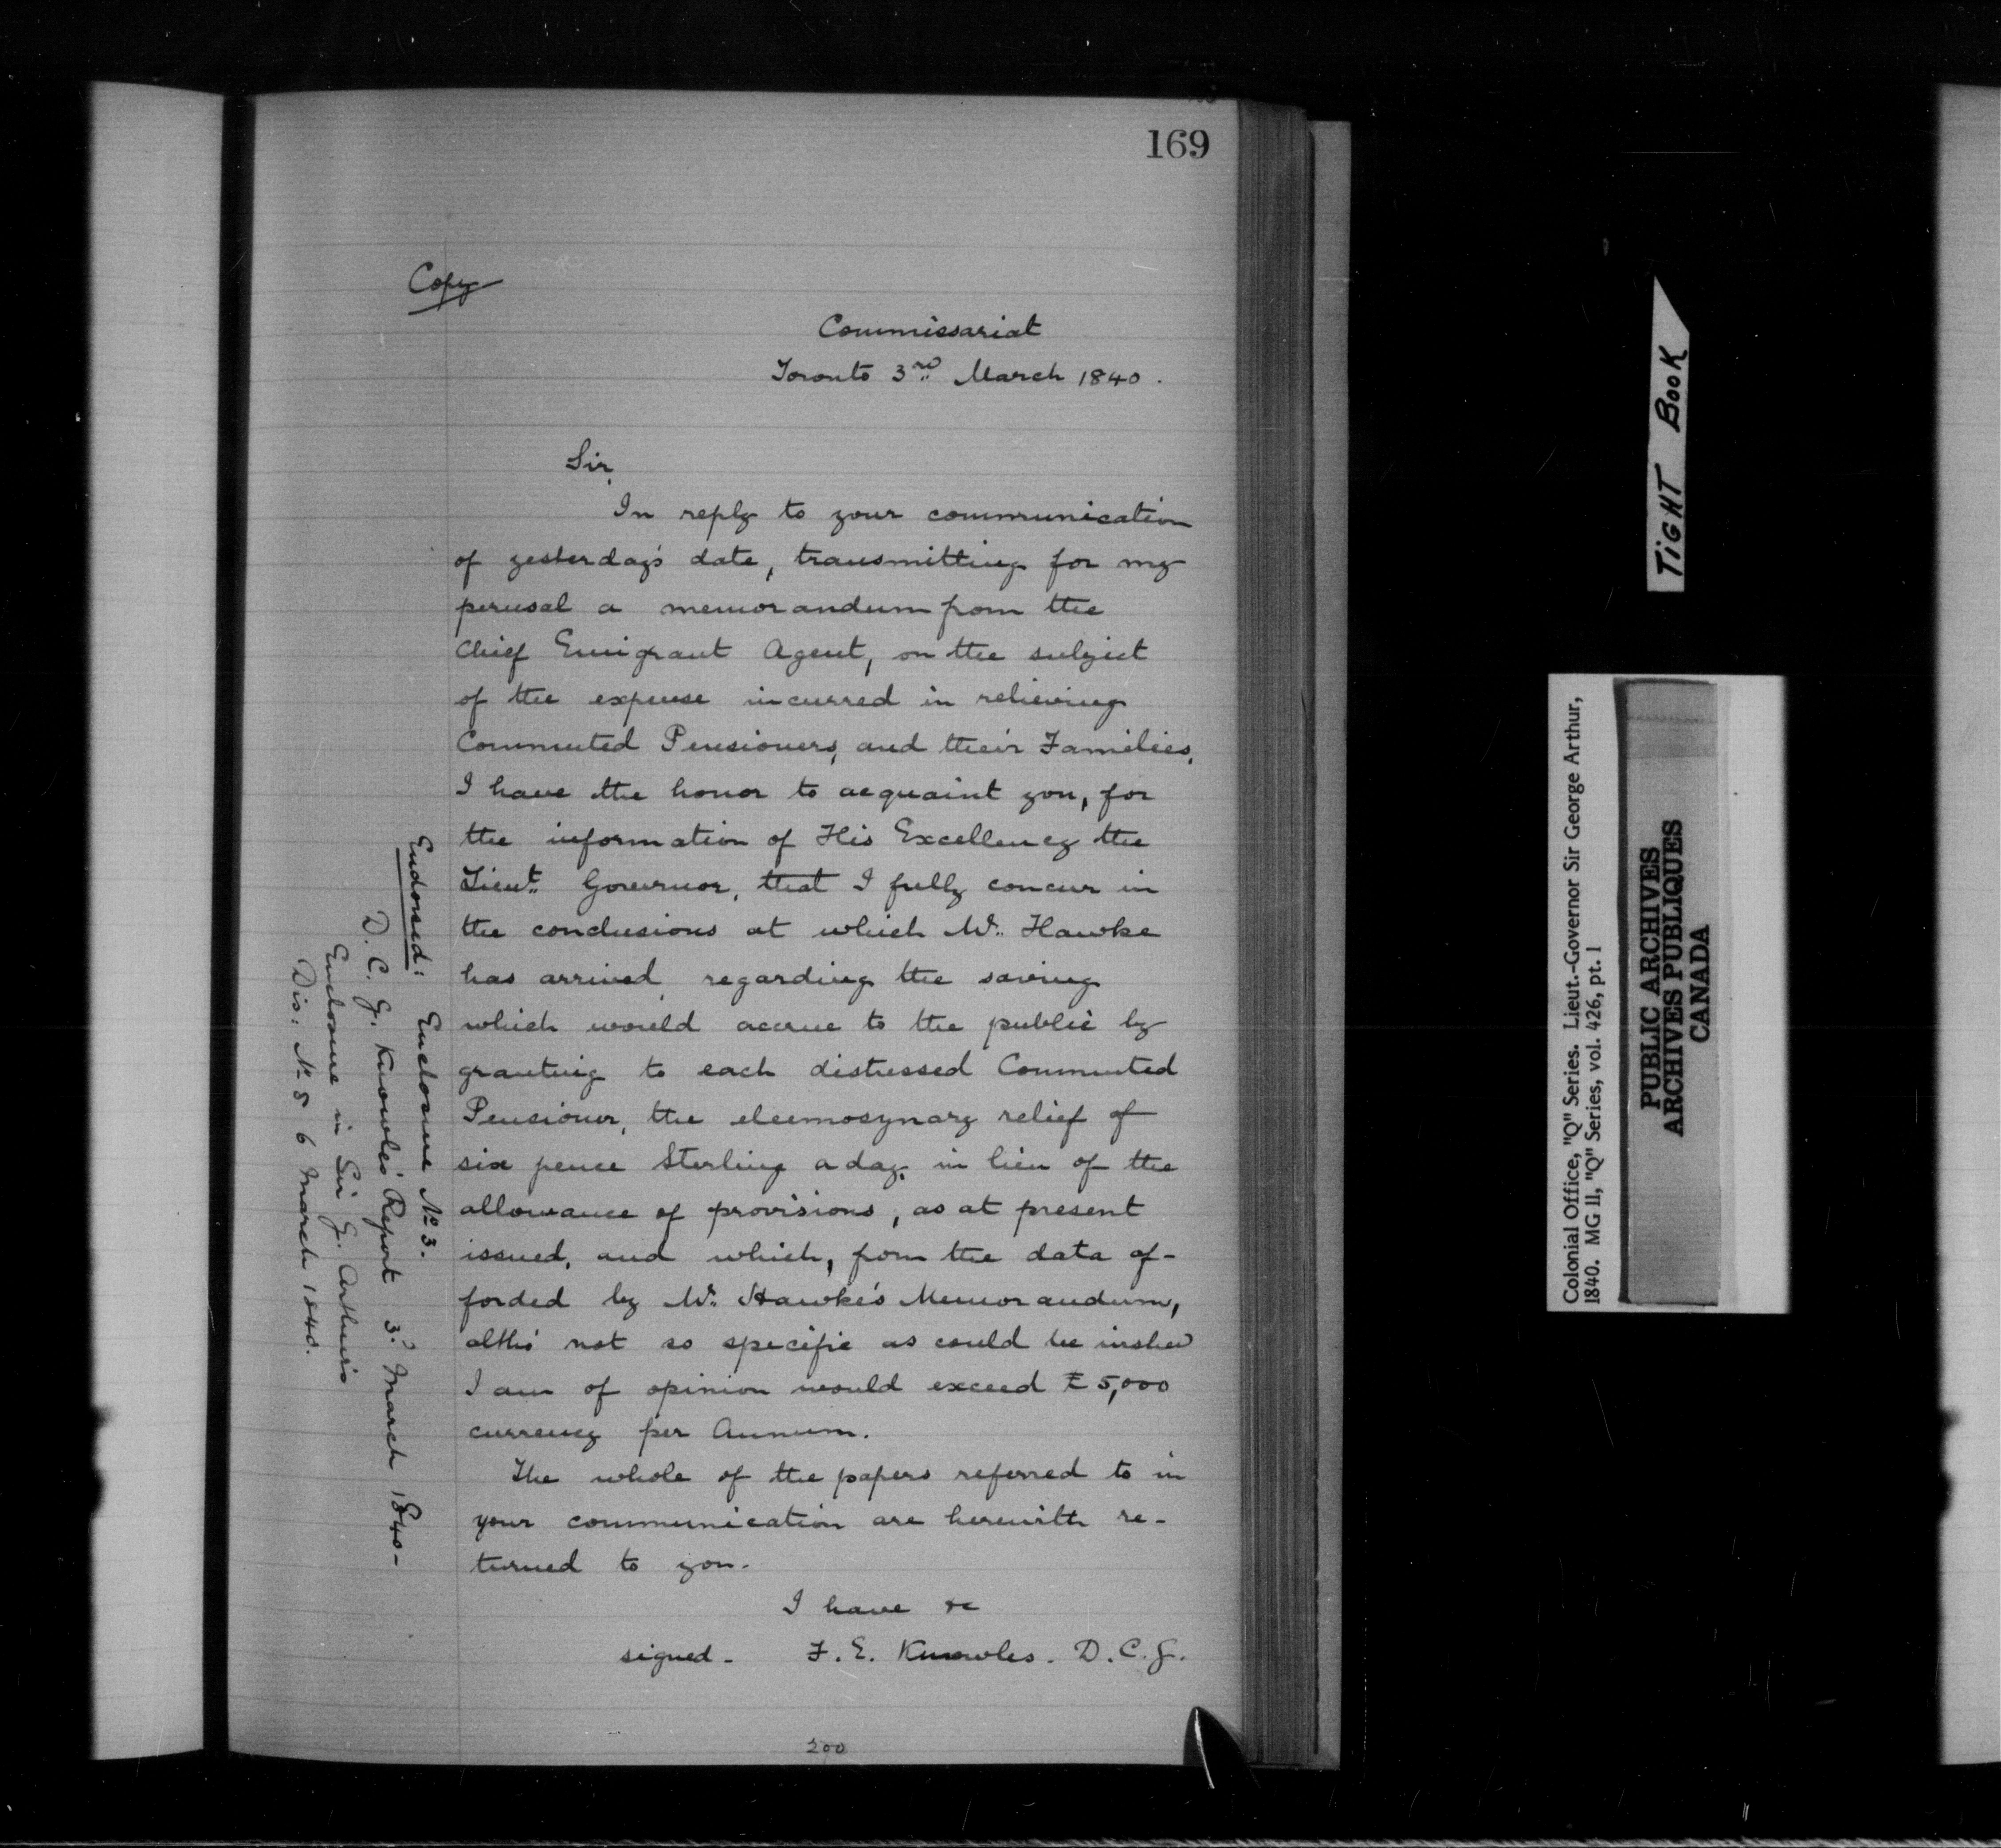 169
Copy
Commissariat
Toronto 3rd March 1840.
Sir,
In reply to your communication
of yesterday's date, transmitting for my
perusal a memorandum from the
Chief Emigrant Agent, on the subject
of the expense incurred in relieving
Commuted Pensioners, and their Families,
I have the honor to acquaint you, for
the information of His Excellency the
Lieut. Governor, that I fully concur in
the conclusions at which Mr. Hawke
has arrived, regarding the saving
which would accrue to the public by
granting to each distressed Commuted
Pensioner, the eleemosynary relief of
six pence Sterling a day, in lieu of the
allowance of provisions, as at present
issued, and which, from the data af-
forded by Mr. Hawke's Memorandum,
altho' not so specific as could be wished
I am of opinion would exceed £5,000
currency per Annum.
The whole of the papers referred to in
your communication are herewith re-
turned to you.
I have &c
signed - F. E. Knowles. D.C.G.
200
Endorsed: Enclosure No 3.
D. C. G. Knowles' Report 3d March 1840-
Enclosure in Sir G. Arthur's
Dis: No 5 6 March 1840.
TIGHT BOOK
Colonial Office, "Q" Series. Lieut.-Governor Sir George Arthur,
1840. MG 11, "Q" Series, vol. 426, pt. 1
PUBLIC ARCHIVES
ARCHIVES PUBLIQUES
CANADA